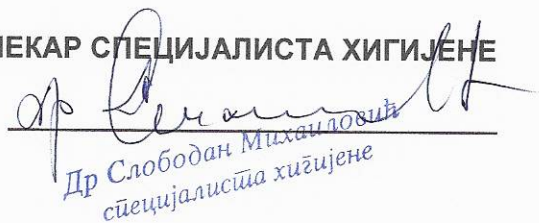 ЛЕКАР СПЕЦИЈАЛИСТА ХИГИЈЕНЕ
др
Др Слободан Михаиловић
специјалиста хигијене